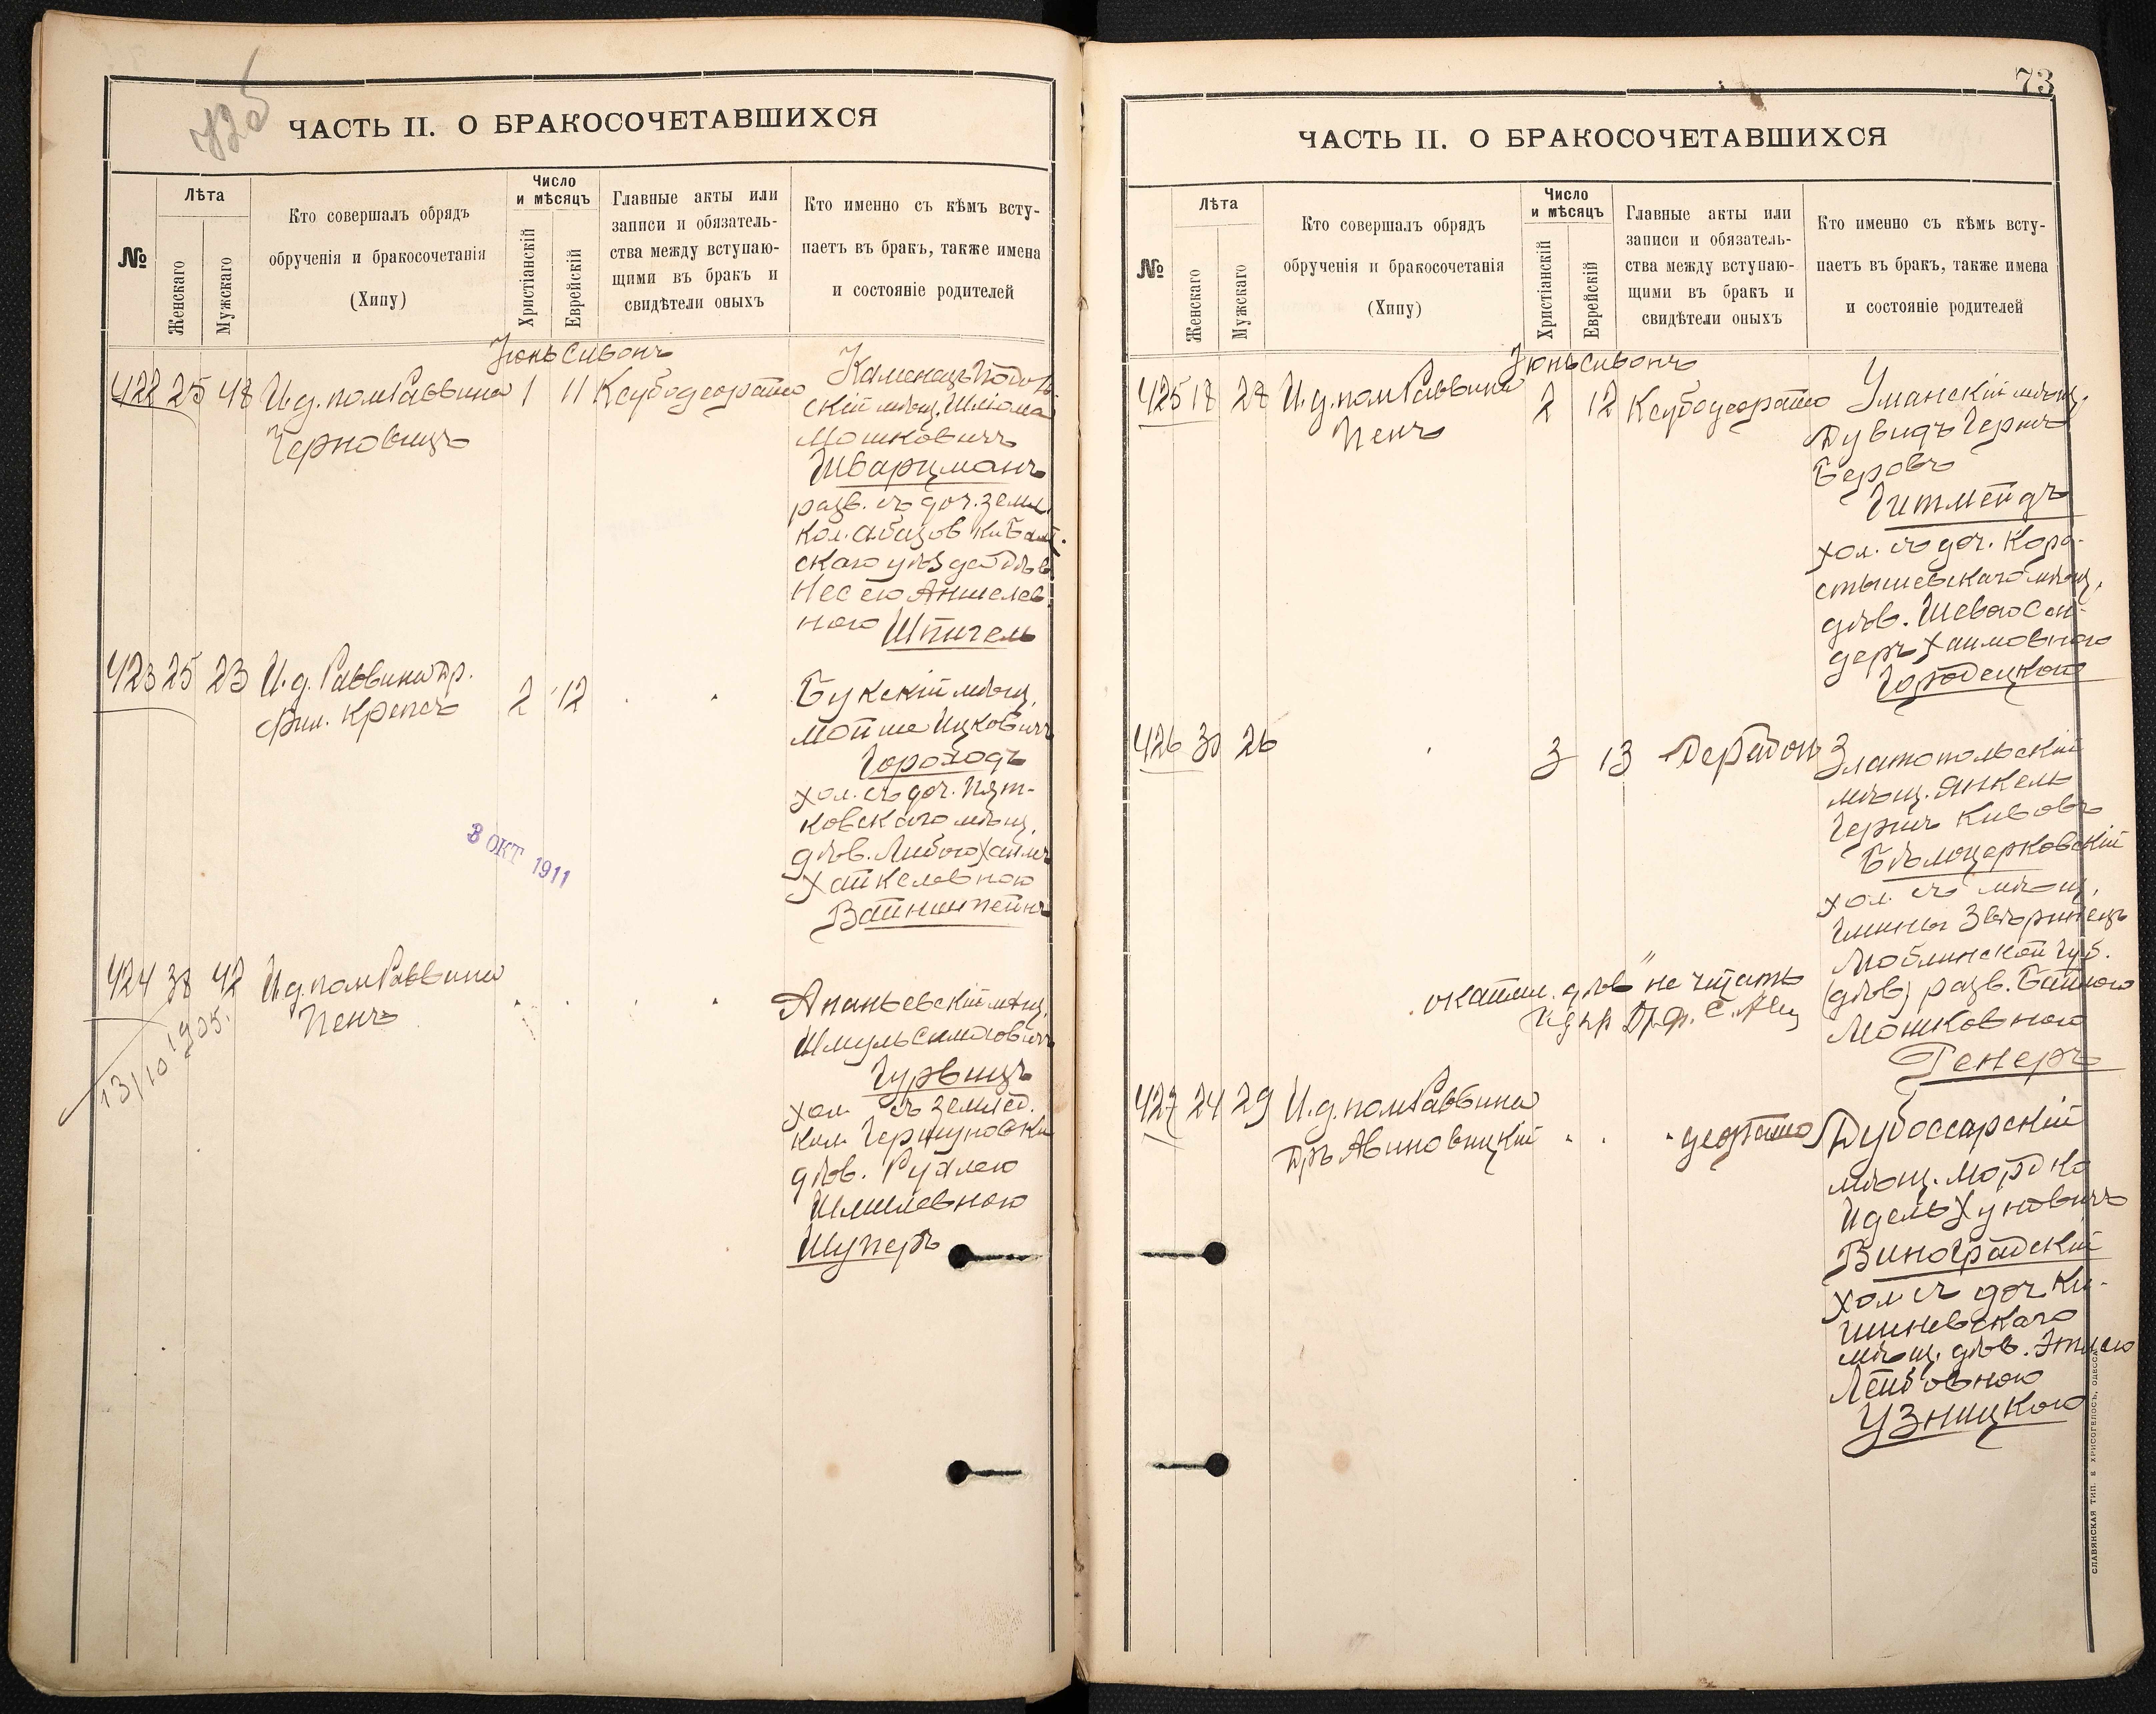 ЧАСТЬ II. О БРАКОСОЧЕТАВШИХСЯ
№
Лѣта
Женскаго
Мужскаго
Кто совершалъ обрядъ
обрученія и бракосочетанія
(Хипу)
Число
и мѣсяцъ
Христіанскій
Еврейскій
Главные акты или
записи и обязатель-
ства между вступаю-
щими въ бракъ и
свидѣтели оныхъ
Кто именно съ кѣмъ всту-
паетъ въ бракъ, также имена
и состояніе родителей
Іюнь Сивонъ
422 25 48 И.д. пом Раввина 1 11
Черновицъ
Каменецъ Подоль
скій мѣщ. Шліома
Мошковичъ
Шварцманъ
разв. съ доч. земл.
скаго уѣзда дѣв.
Несею Аншелев
ною Шпигель
423 25 23 И.д. Раввина Др. 2 12
Фил. Крепсъ
Букскій мѣщ.
Мойше Ицковичъ
Гороходъ
хол. съ доч. Пят-
ковскаго мѣщ.
дѣв. Либою Хаит
Хайкелевною
Вайнштейнъ
3 ОКТ 1911
424 38 42 И.д. пом Раввина
Пенъ
13/10 1905.
Ананьевскій мѣщ.
Шмуль Симоновичъ
Гурвицъ
хол. съ землед.
дѣв. Рухлею
Шмилевною
Шуперъ
73
ЧАСТЬ II. О БРАКОСОЧЕТАВШИХСЯ
№
Лѣта
Женскаго
Мужскаго
Кто совершалъ обрядъ
обрученія и бракосочетанія
(Хипу)
Число
и мѣсяцъ
Христіанскій
Еврейскій
Главные акты или
записи и обязатель-
ства между вступаю-
щими въ бракъ и
свидѣтели оныхъ
Кто именно съ кѣмъ всту-
паетъ въ бракъ, также имена
и состояніе родителей
Іюнь Сивонъ
425 18 28 И.д. пом Раввина 2 12
Пенъ
Уманскій мѣщ.
Дувидъ Гершъ
Беровъ
Гитмейдъ
хол. съ доч. Коро-
стышевскаго мѣщ.
дѣв. Шевою Сен-
деръ Хаимовною
Городецкою
426 30 26 3 13
Златопольскій
мѣщ. Янкель
Гершъ Кивовъ
Бѣлоцерковскій
хол. съ мѣщ.
Гмины Звѣринецъ
Люблинской губ.
(дѣв) разв. Бейлою
Мошковною
Генеръ
дѣв" не читать
427 24 29 И.д. пом Раввина
Дръ Авиновицкій
Дубоссарскій
мѣщ. Мордко
Идель Хуновичъ
Виноградскій
хол съ доч Ки-
шиневскаго
мѣщ. дѣв. Этлею
Лейбовною
Узницкою
СЛАВЯНСКАЯ ТИП. Е ХРИСОГЕЛОСЪ, ОДЕССА